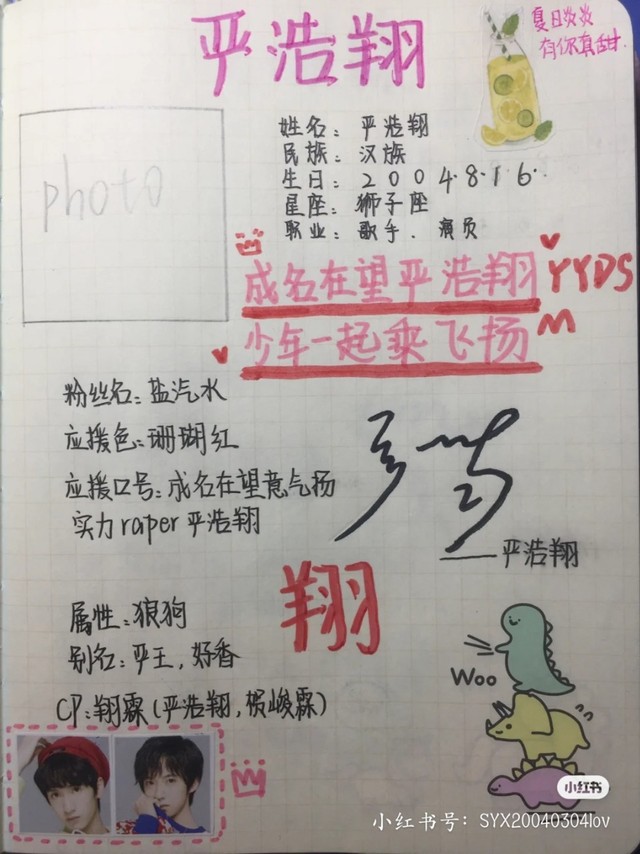 严浩翔
夏日炎炎
有你真甜
photo
姓名：严浩翔
民族：汉族
生日：2004·8·16··
星座：狮子座
职业：歌手．演员
成名在望严浩翔YYDS
少年一起乘飞扬
粉丝名：盐汽水
应援色：珊瑚红
应援口号：成名在望意气扬
实力raper严浩翔
——严浩翔
翔
属性：狼狗
别名：严王，好香
CP：翔霖（严浩翔，贺峻霖）
Woo
小红书
小红书号：SYX20040304lov